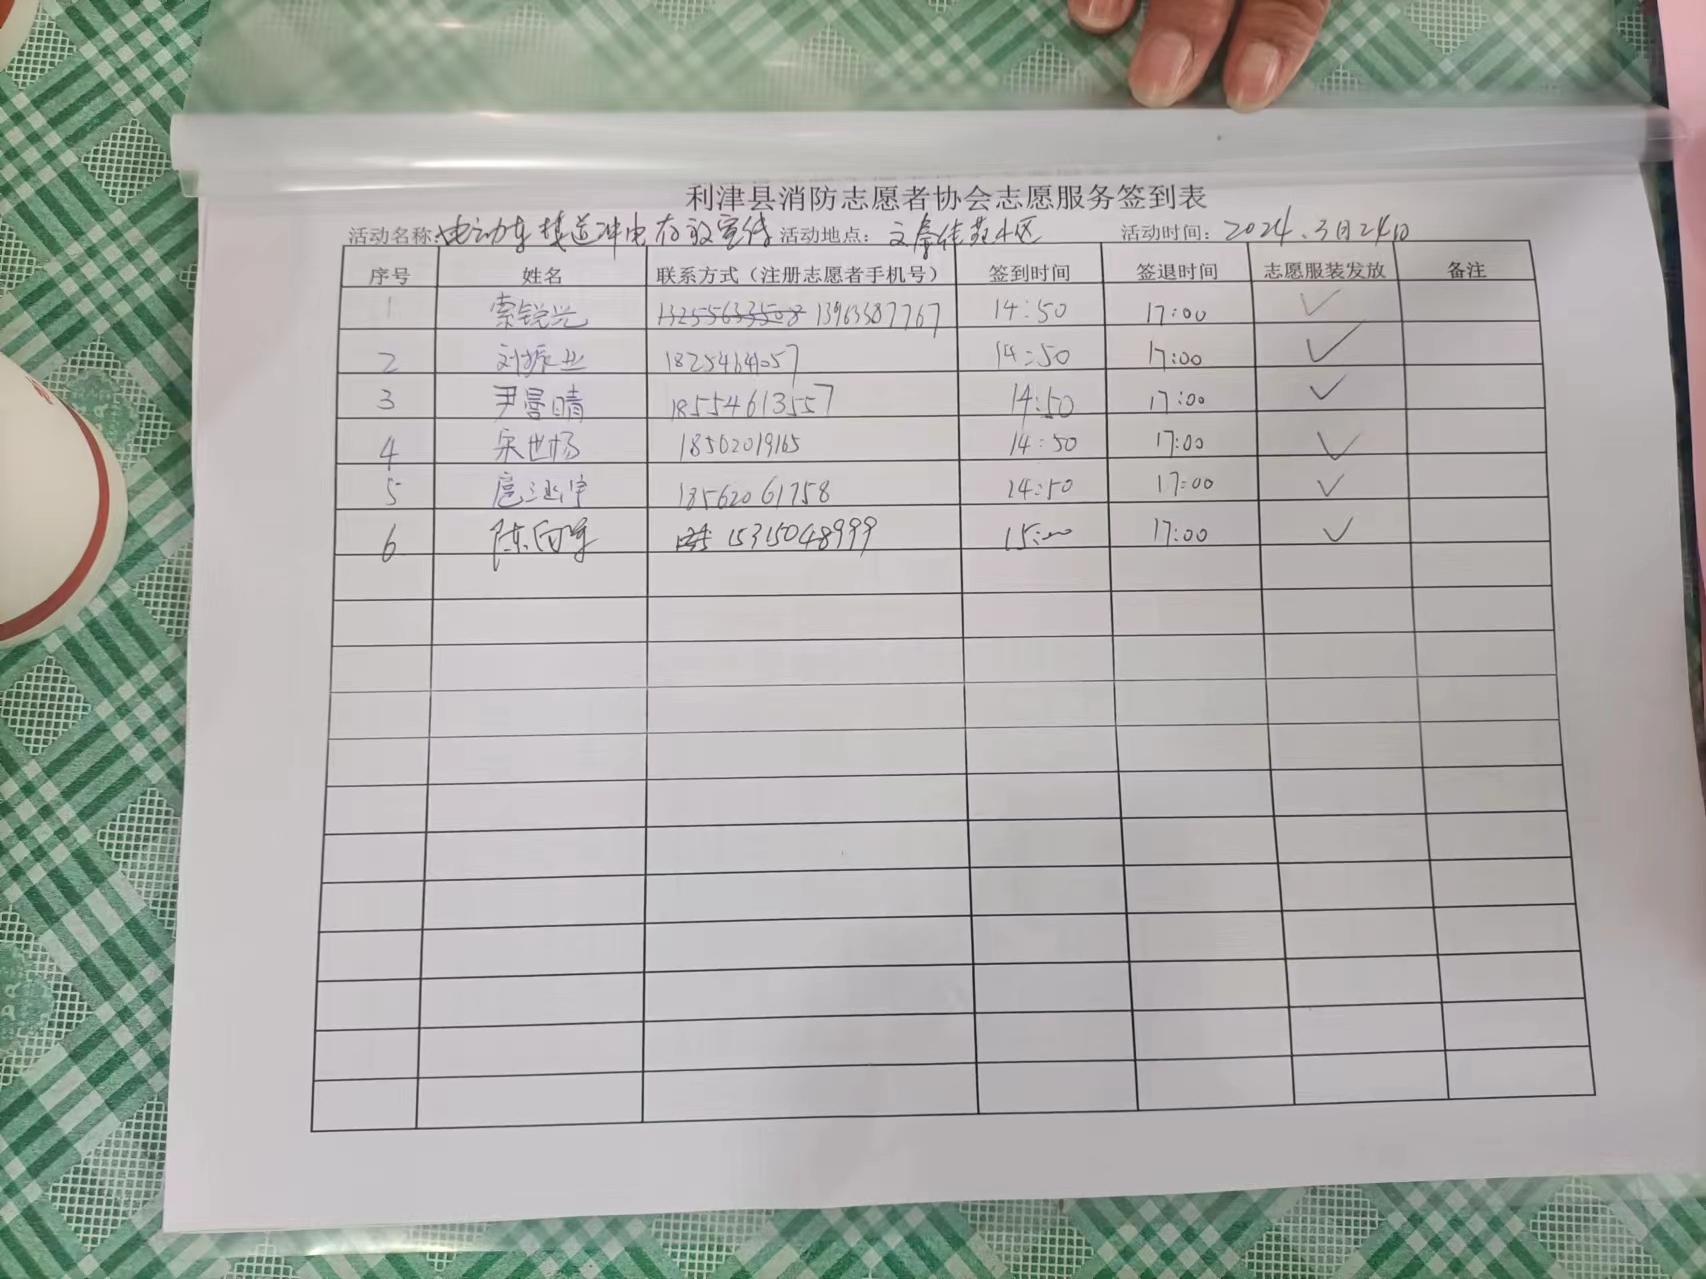 利津县消防志愿者协会志愿服务签到表
活动名称:电动车 充电存放宣传 活动地点: 文 佳苑小区 活动时间: 2024.3月24日
序号 姓名 联系方式（注册志愿者手机号） 签到时间 签退时间 志愿服装发放 备注
1 索锐兴 13963587767 14:50 17:00 ✓
2 刘振业 18254641057 14:50 17:00 ✓
3 尹曼晴 18554613557 14:50 17:00 ✓
4 宋世杨 18562019165 14:50 17:00 ✓
5 18562061758 14:50 17:00 ✓
6 陈向军 15315048999 15:00 17:00 ✓